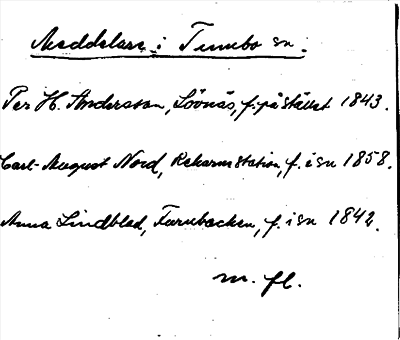 Meddelare i Tumbo sn.
Per H. Andersson, Lövnäs, f. på stället 1843.
Carl-August Nord, Rekarnestation, f. i sn 1858.
Anna Lindblad, Furubacken, f. i sn 1842.
m. fl.